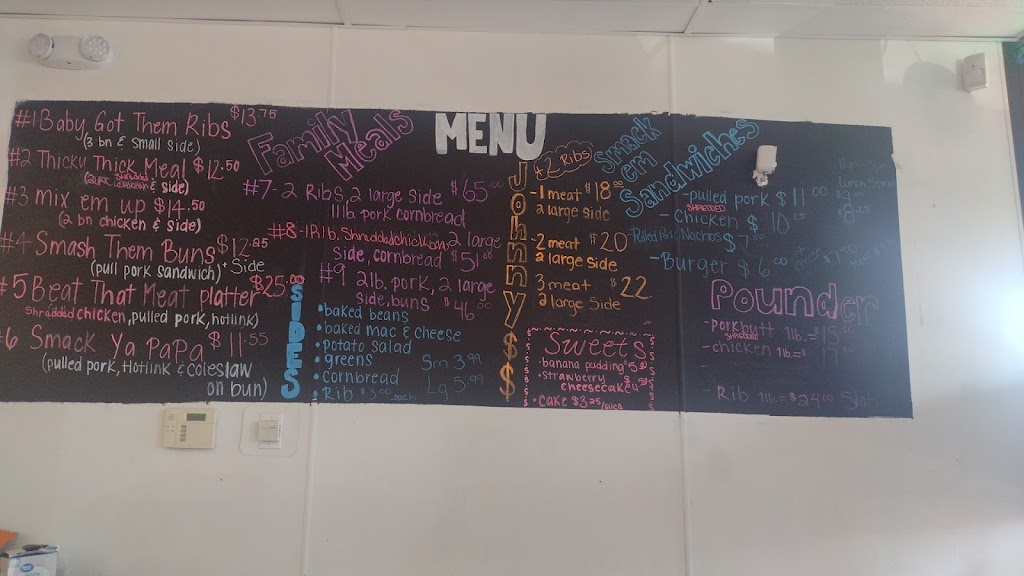 MENU
#1 Baby Got Them Ribs $13.75
(3 bn & small side)
#2 Thicky Thick Meal $12.50
& side)
#3 mix em up $14.50
(2 bn chicken & side)
#4 Smash Them Buns $12.95
(pull pork sandwich) + Side
#5 Beat That Meat platter $25.00
Shredded chicken, pulled pork, hotlink)
#6 Smack Ya PaPa $11.55
(pulled pork, Hotlink & Coleslaw
on bun)
Family
Meals
#7- 2 Ribs, 2 large side $65.00
1lb pork cornbread
#8-1Rib, Shredded chicken, 2 large
side, cornbread $51.00
#9 2lb. pork, 2 large
side, buns $46.00
SIDES
•baked beans
•baked mac & cheese
•potato salad
•greens
•cornbread
•Rib $3.00 each
Sm 3.99
Lg 5.99
Johnny $$
+2 Ribs
-1 meat $18.00
2 large side
-2 meat $20
2 large side
3 meat $22
2 large side
Sweets
•banana pudding
•strawberry
cheesecake
•cake $3.25/slice
Smack
em
Sandwiches
-pulled pork $11.00
SHREDDED
-Chicken $10.25
Pulled Pork Nachos $7.50
-Burger $6.00
Pounder
-pork butt 1lb.=$15.50
Shredded
-chicken 1lb=$17.00
-Rib 1lb.=$24.00 Slab